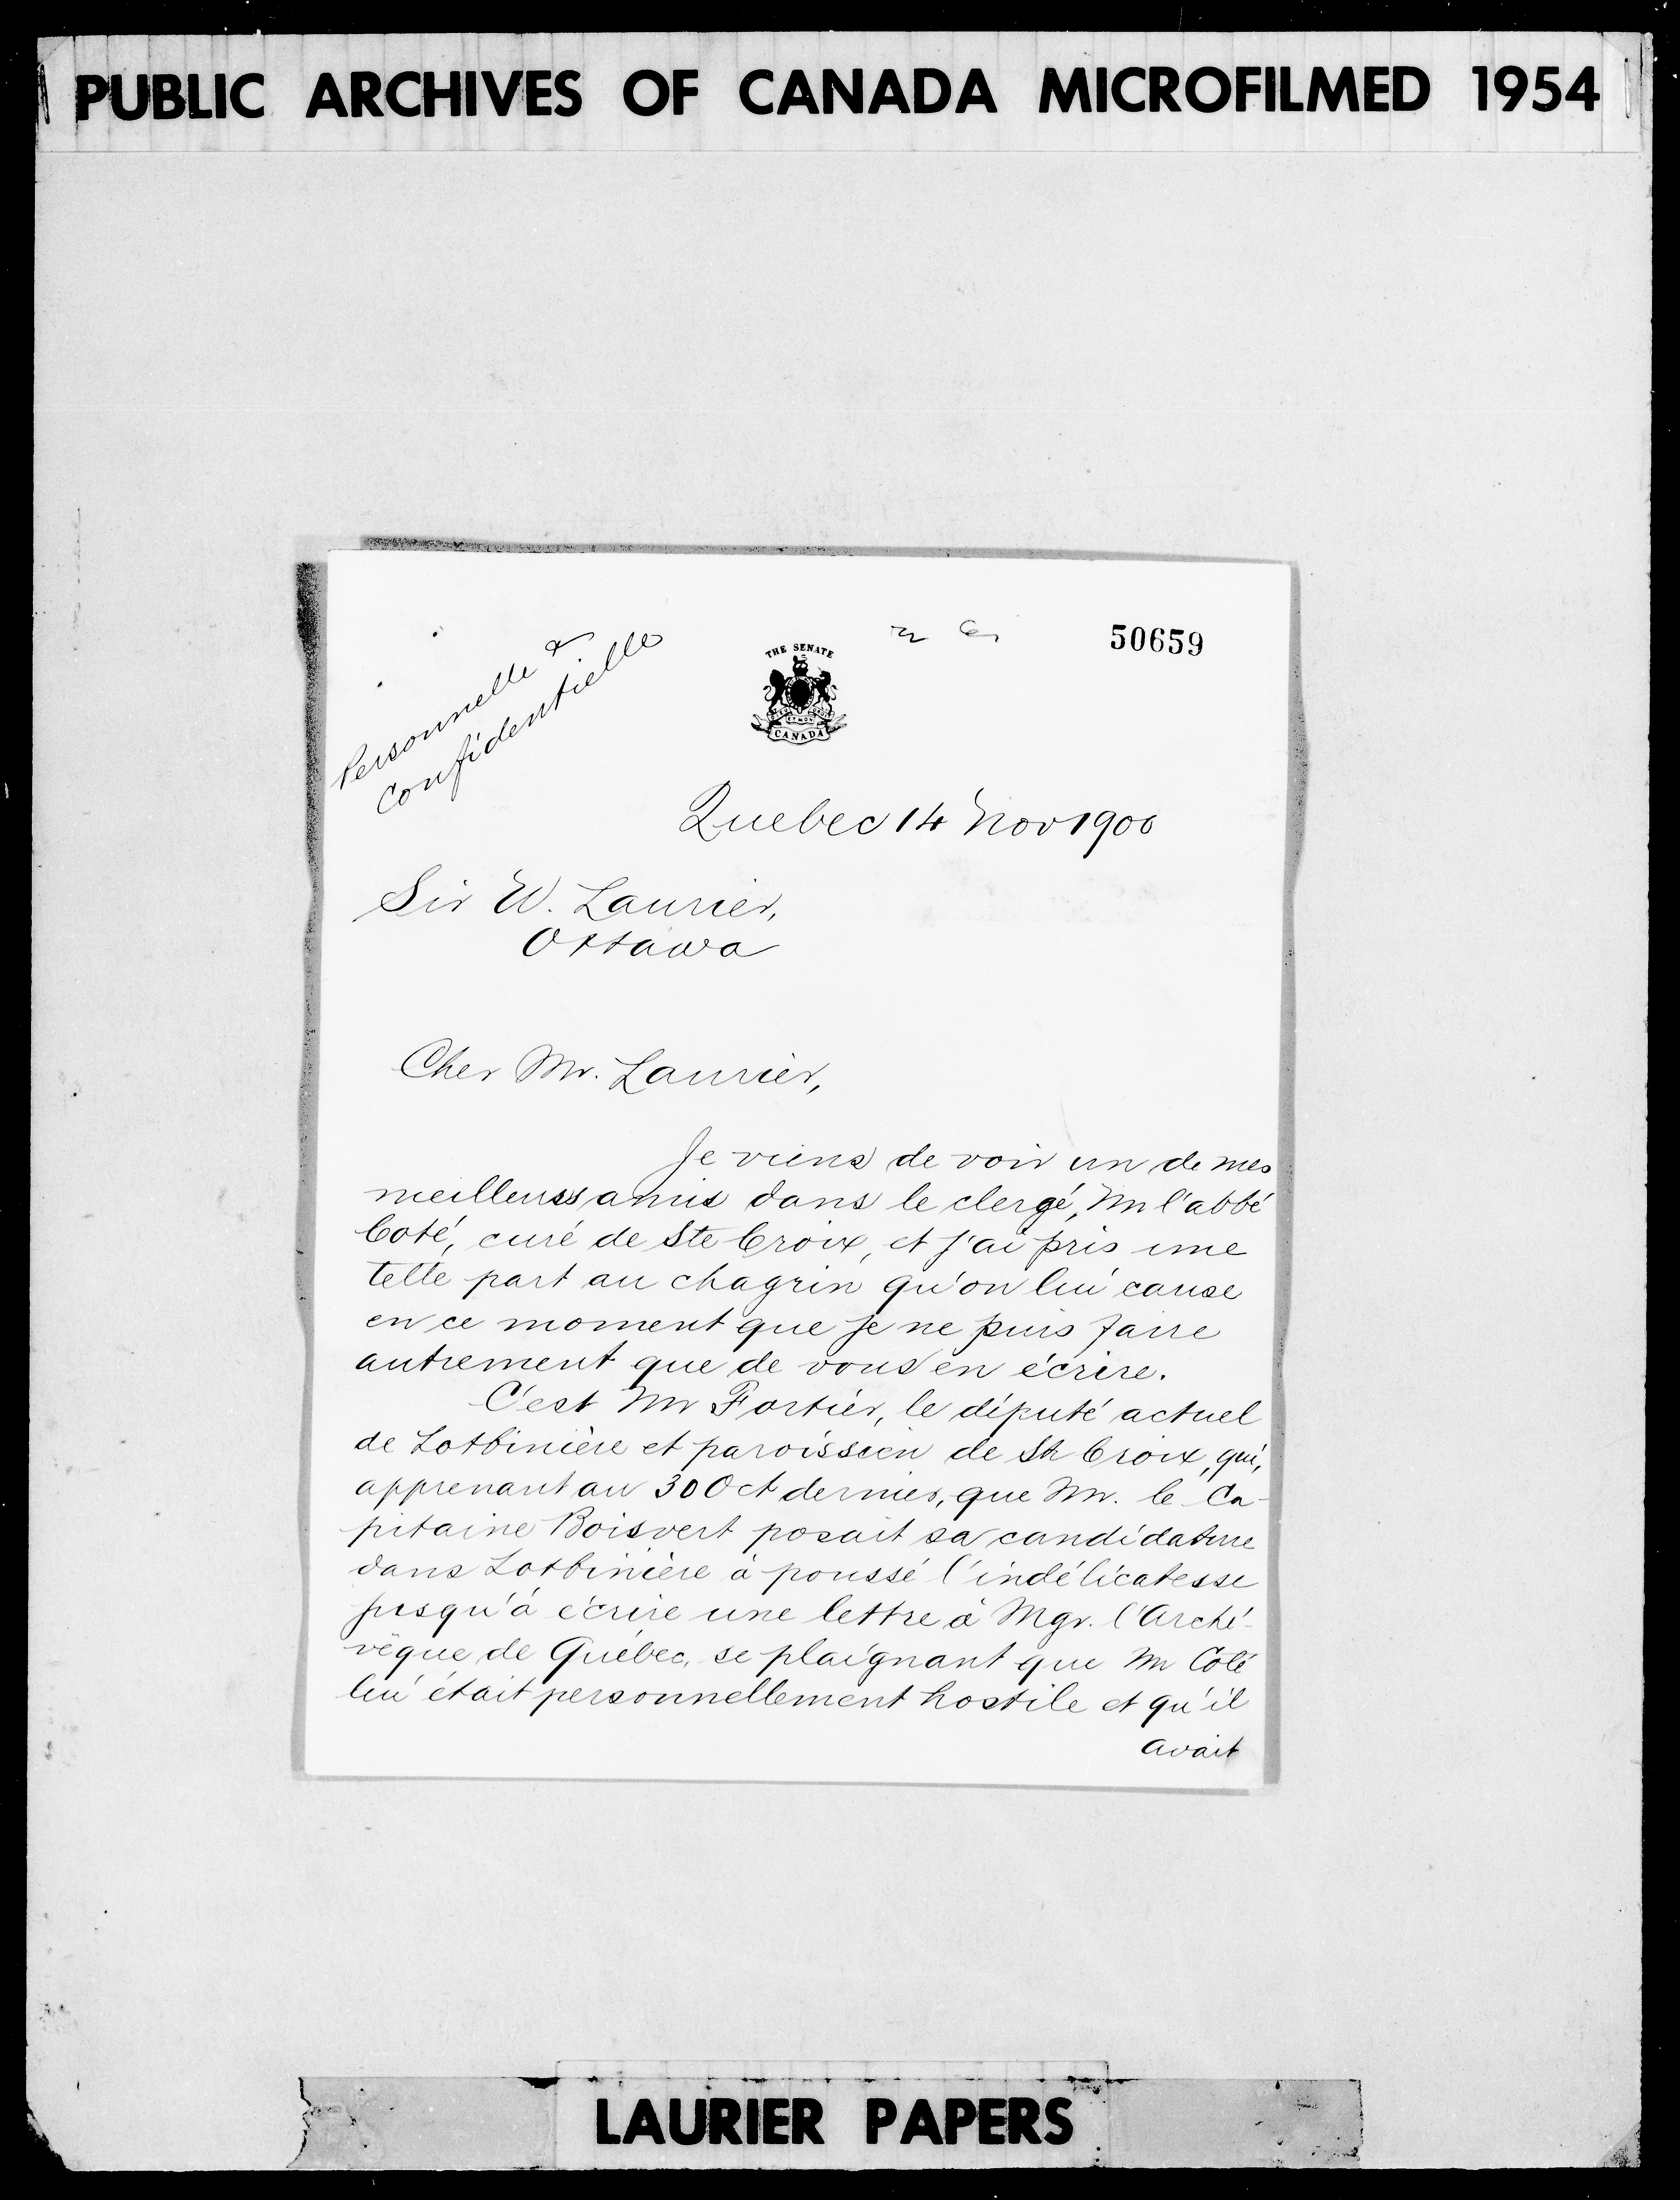 PUBLIC ARCHIVES OF CANADA MICROFILMED 1954
50659
Personnelle &
Confidentielle
THE SENATE
CANADA
Quebec 14 Nov 1900
Sir W. Laurier,
Ottawa
Cher Mr. Laurier,
Je viens de voir un de mes
meilleurs amis dans le clergé, Mr l'abbé
Coté, curé de Ste Croix, et j'ai pris une
telle part au chagrin qu'on lui cause
en ce moment que je ne puis faire
autrement que de vous en écrire.
C'est Mr Fortier, le député actuel
de Lotbinière et paroissien de Ste Croix, qui,
apprenant au 30 Oct dernier, que Mr. le Ca-
pitaine Boisvert posait sa candidature
dans Lotbinière à poussé l'indélicatesse
jusqu'à écrire une lettre à Mgr. l'Arché-
vêque de Québec, se plaignant que Mr Coté
lui était personnellement hostile et qu'il
avait
LAURIER PAPERS